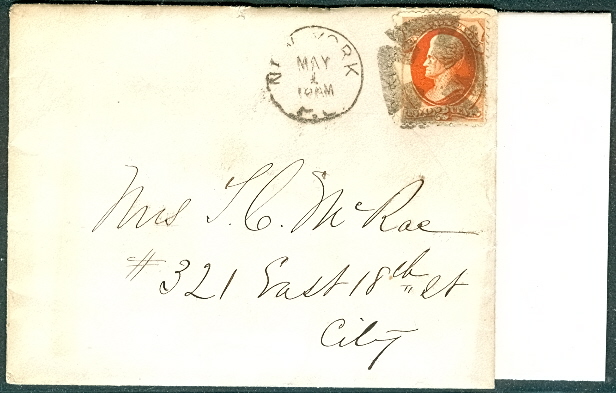 NEW YORK
MAY
1
10 AM
Mrs T. C. McRae
# 321 East 18th St
City